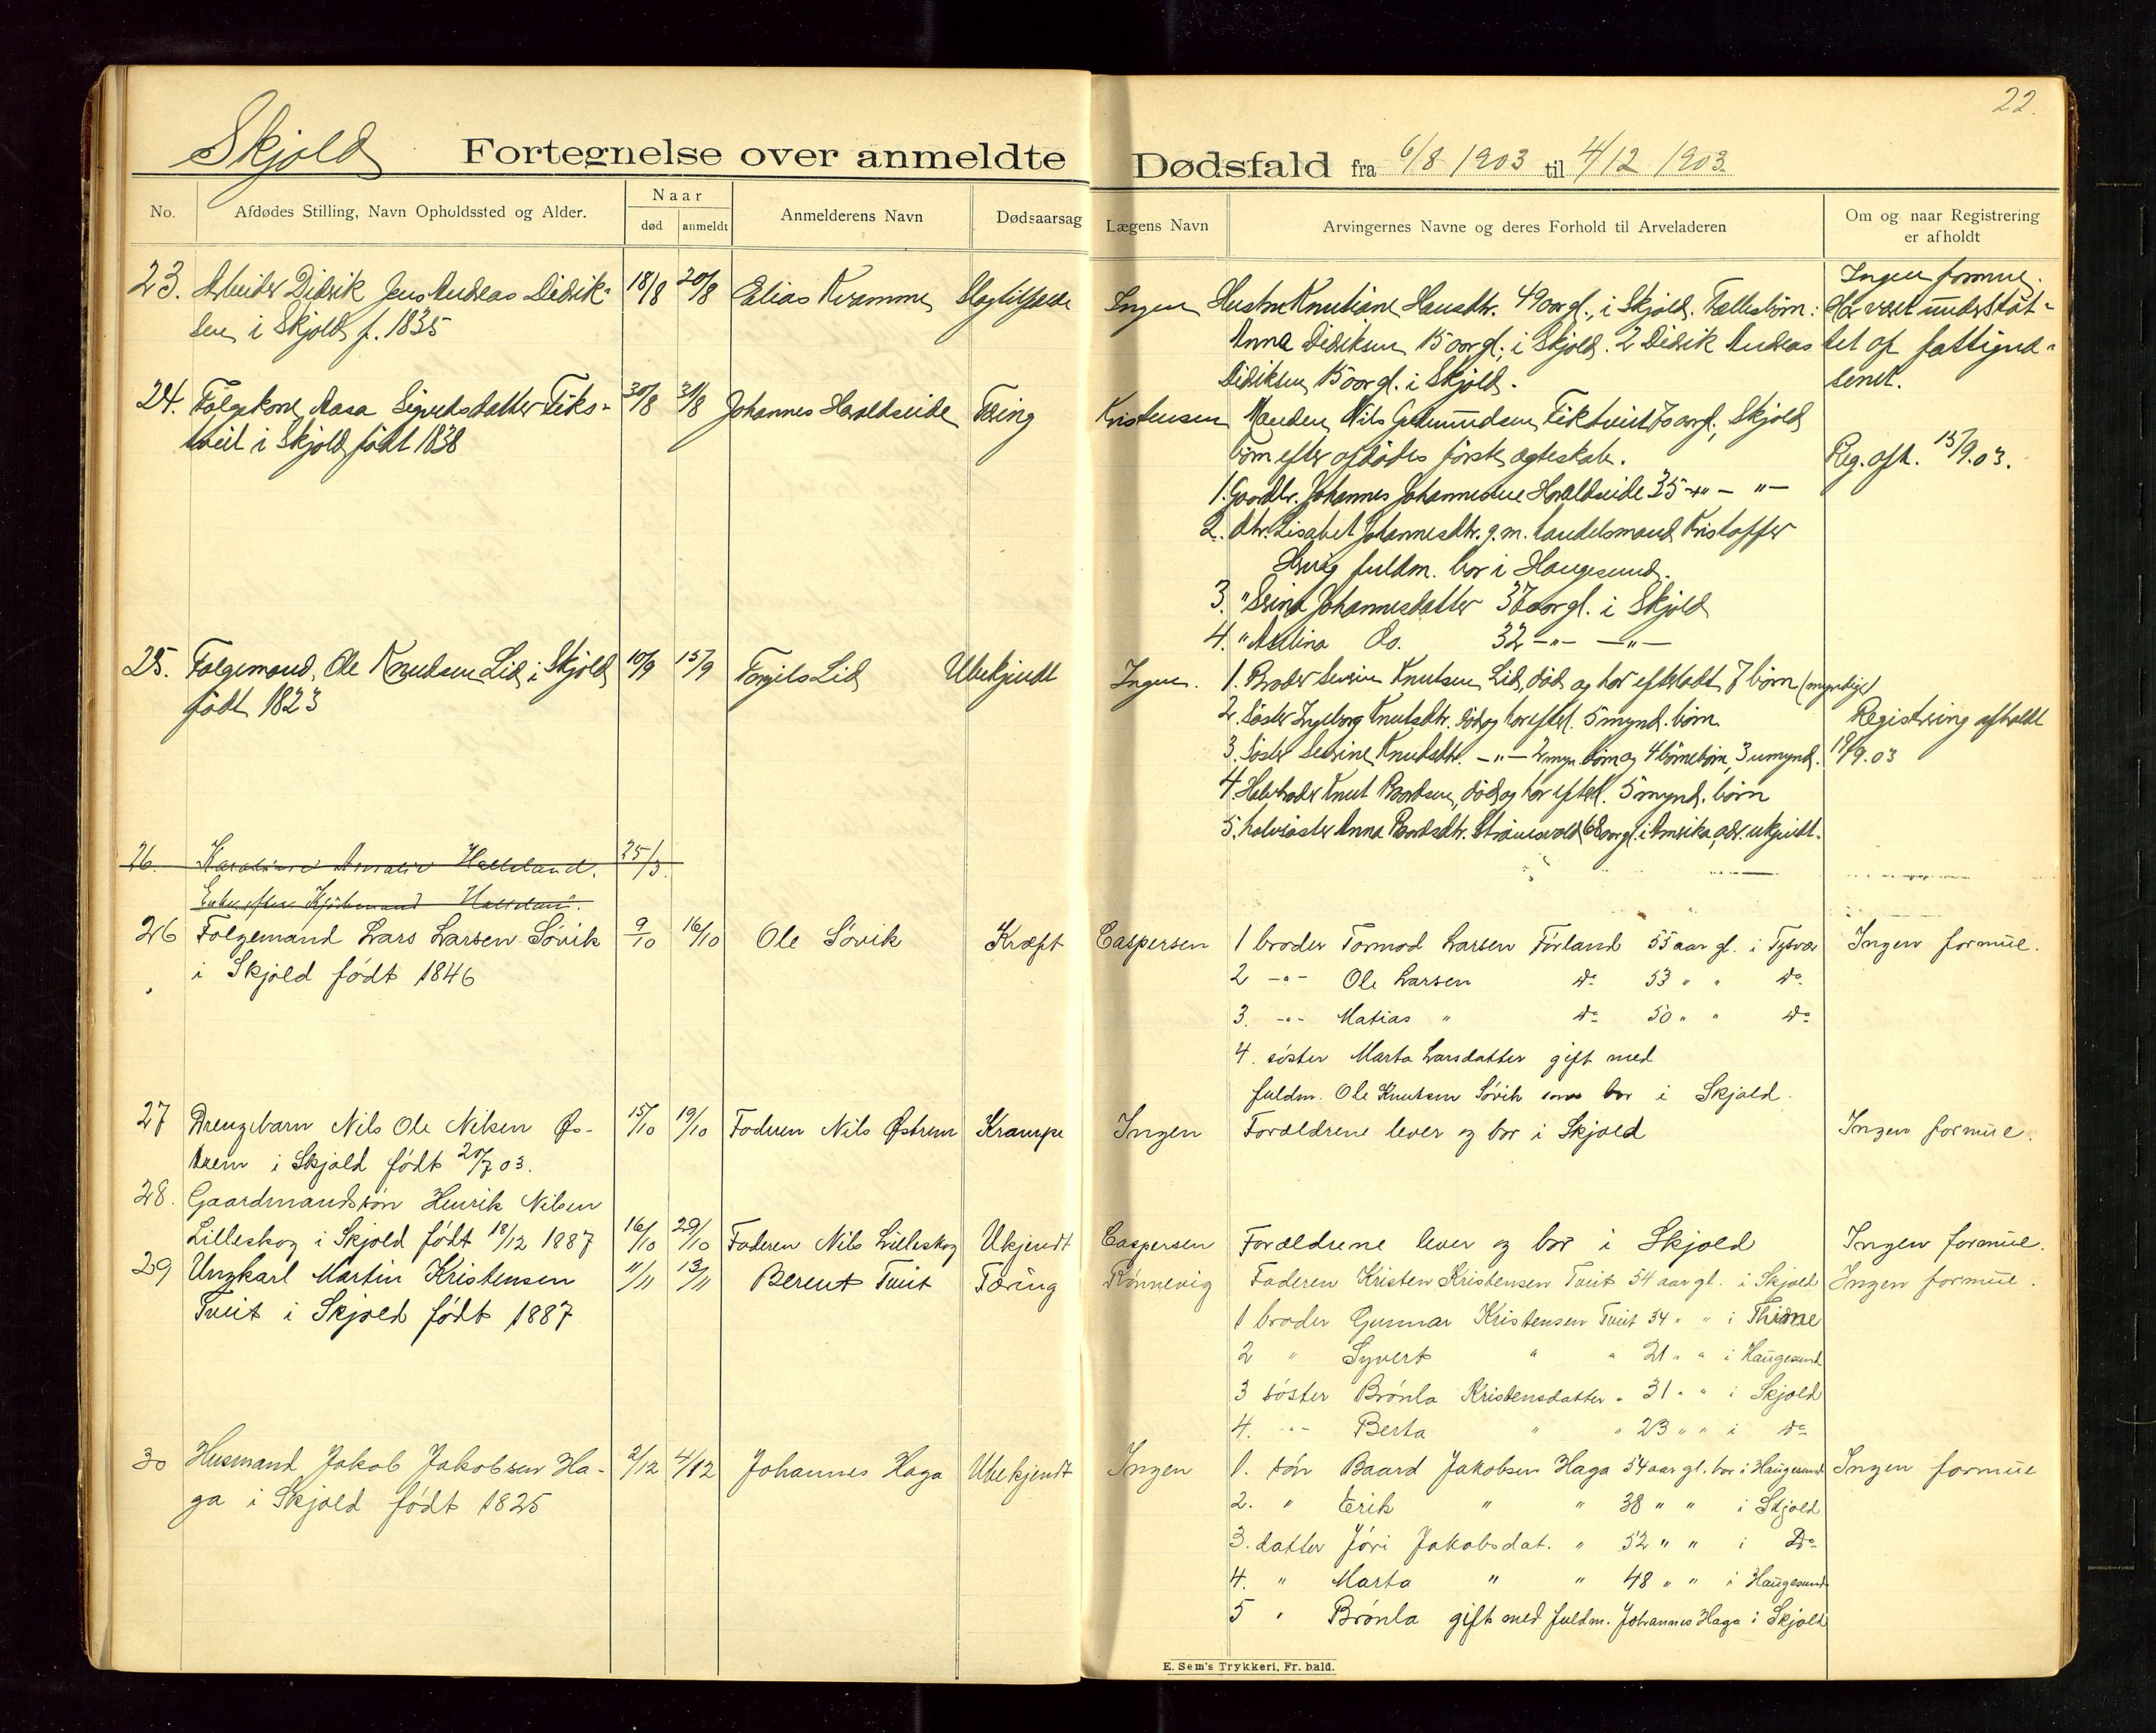 22.
Skjold Fortegnelse over anmeldte Dødsfald fra 6/8 1903 til 4/12 1903.
No. Afdødes Stilling, Navn Opholdssted og Alder. Naar død anmeldt Anmelderens Navn Dødsaarsag Lægens Navn Arvingernes Navne og deres Forhold til Arveladeren Om og naar Registrering er afholdt
23. Arbeider Didrik Jens Andreas Didrik- 18/8 20/8 Elias Kvamme Slagtilfælde Ingen Hustru Knutiane Hansdtr. 49 aar gl., i Skjold. Fællesbørn: Ingen formue.
sen i Skjold f. 1835 Anna Didriksen 15 aar gl. i Skjold. 2 Didrik Andreas Ha været understøt-
Didriksen 15 aar gl. i Skjold. tet af fattigvæ-
senet.
24. Følgekone Aasa Sigurdsdatter Fiks- 30/8 31/8 Johannes Haraldseide Tæring Kristensen Manden Nils Gudmundsen Fiktveit aargl., Skjold
tveit i Skjold født 1838 børn efter afdødes første ægteskab. Reg. afh. 15/9.03.
1. Gaardbr. Johannes Johannessen Haraldseide 35 -"- "-
2. dtr. Lisabet Johannesdtr. g.m. handelsmand Kristoffer
fuldm. bor i Haugesund.
3. " Serina Johannesdatter 37 aar gl. i Skjold
4. " Do. 32 -"- -"-
25. Følgemand Ole Knudsen Lid i Skjold 10/9 15/9 Torgils Lid Ubekjendt Ingen. 1. Broder Severin Knutsen Lid, død og har efterladt 7 børn (myndige)
født 1823 2. Søster Ingeborg Knutsdtr. død og har efterl. 5 mynd. børn Registrering afholdt
3. Søster Serine Knudsdtr. -"- 2 myn. børn og 4 børnebørn, 3 umynd. 19/9.03
4. Halvbroder Knut Baardsen, død og har efterl. 5 mynd. børn
5. halvsøster Anna Baardsdtr. 68 aar gl. i Amerika, adr. ukjendt.
26. Halleland. 25/3.
Enke efter Kjøbmand
26 Følgemand Lars Larsen Sövik 9/10 16/10 Ole Sövik Kræft Caspersen 1 broder Tormod Larsen Førland 55 aar gl. i Tysvær Ingen formue.
i Skjold født 1846 2 -"- Ole Larsen do 53 " " do.
3. -"- Matias " do 50 " " do
4. søster Marta Larsdatter gift med
fuldm. Ole Knutsen Sövik som bor i Skjold.
27 Drengebarn Nils Ole Nilsen Øs- 15/10 19/10 Faderen Nils Østrem Krampe Ingen Forældrene lever og bor i Skjold Ingen formue.
trem i Skjold født 20/7 03.
28. Gaardmandssön Henrik Nilsen
Lilleskog i Skjold født 18/12 1887 16/10 29/10 Faderen Nils Lilleskog Ukjendt Caspersen Forældrene lever og bor i Skjold Ingen formue.
29 Ungkarl Martin Kristensen 11/11 13/11 Berent Tveit Tæring Rönnevig Faderen Kristen Kristensen Tveit 54 aar gl. i Skjold Ingen formue.
Tveit i Skjold født 1887 1 broder Gunnar Kristensen Tveit 34 " " i Thime
2 " Syvert " " 21 " " i Haugesund
3 söster Brönla Kristensdatter " 31 " " i Skjold
4. -"- Berta " " 23 " " i do
30 Husmand Jakob Jakobsen Ha- 2/12 4/12 Johannes Haga Ubekjendt Ingen 1. sön Baard Jakobsen Haga 54 aar gl. bor i Haugesund Ingen formue
ga i Skjold født 1825 2. " Erik " " 38 " " i Skjold
3. datter Jöri Jakobsdat. " 52 " " i Do
4. " Marta " " 48 " " i Haugesund
5 " Brönla gift med fuldm. Johannes Haga i Skjold
E. Sem's Trykkeri, Fr. hald.